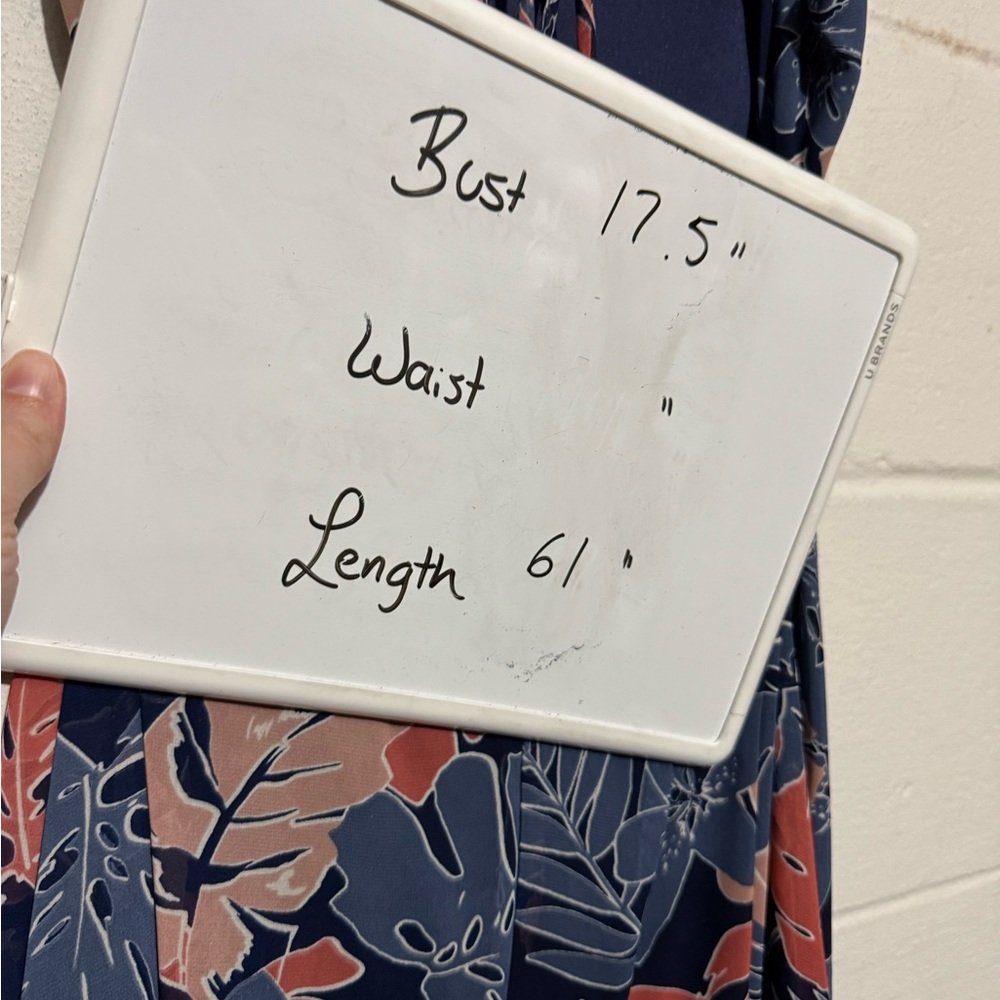 Bust 17.5"
Waist "
Length 61"
U BRANDS